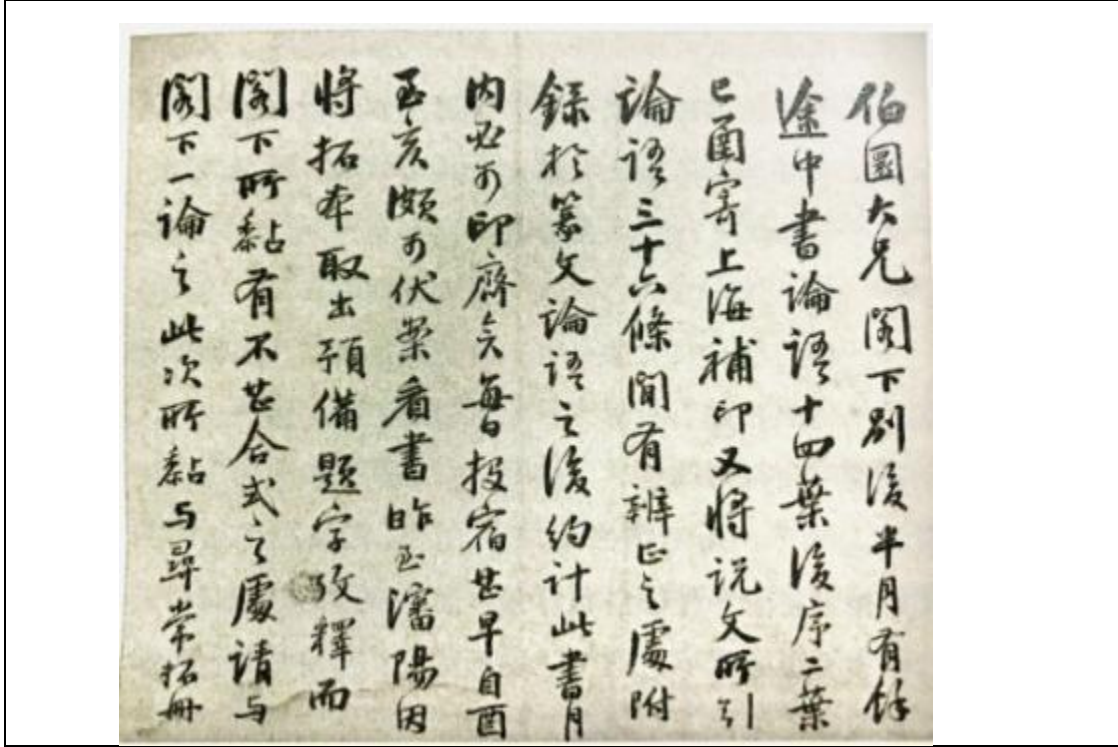 伯圜大兄閣下別後半月有餘
途中書論語十四葉後序二葉
已函寄上海補印又將説文所引
論語三十六條間有辨正之處附
録於篆文論語之後約計此書月
内必可印齊矣每日投宿甚早自酉
至亥頗可伏案看書昨至瀋陽因
將拓本取出預備題字攷釋而
閣下所黏有不甚合式之處請与
閣下一論之此次所黏与尋常拓冊